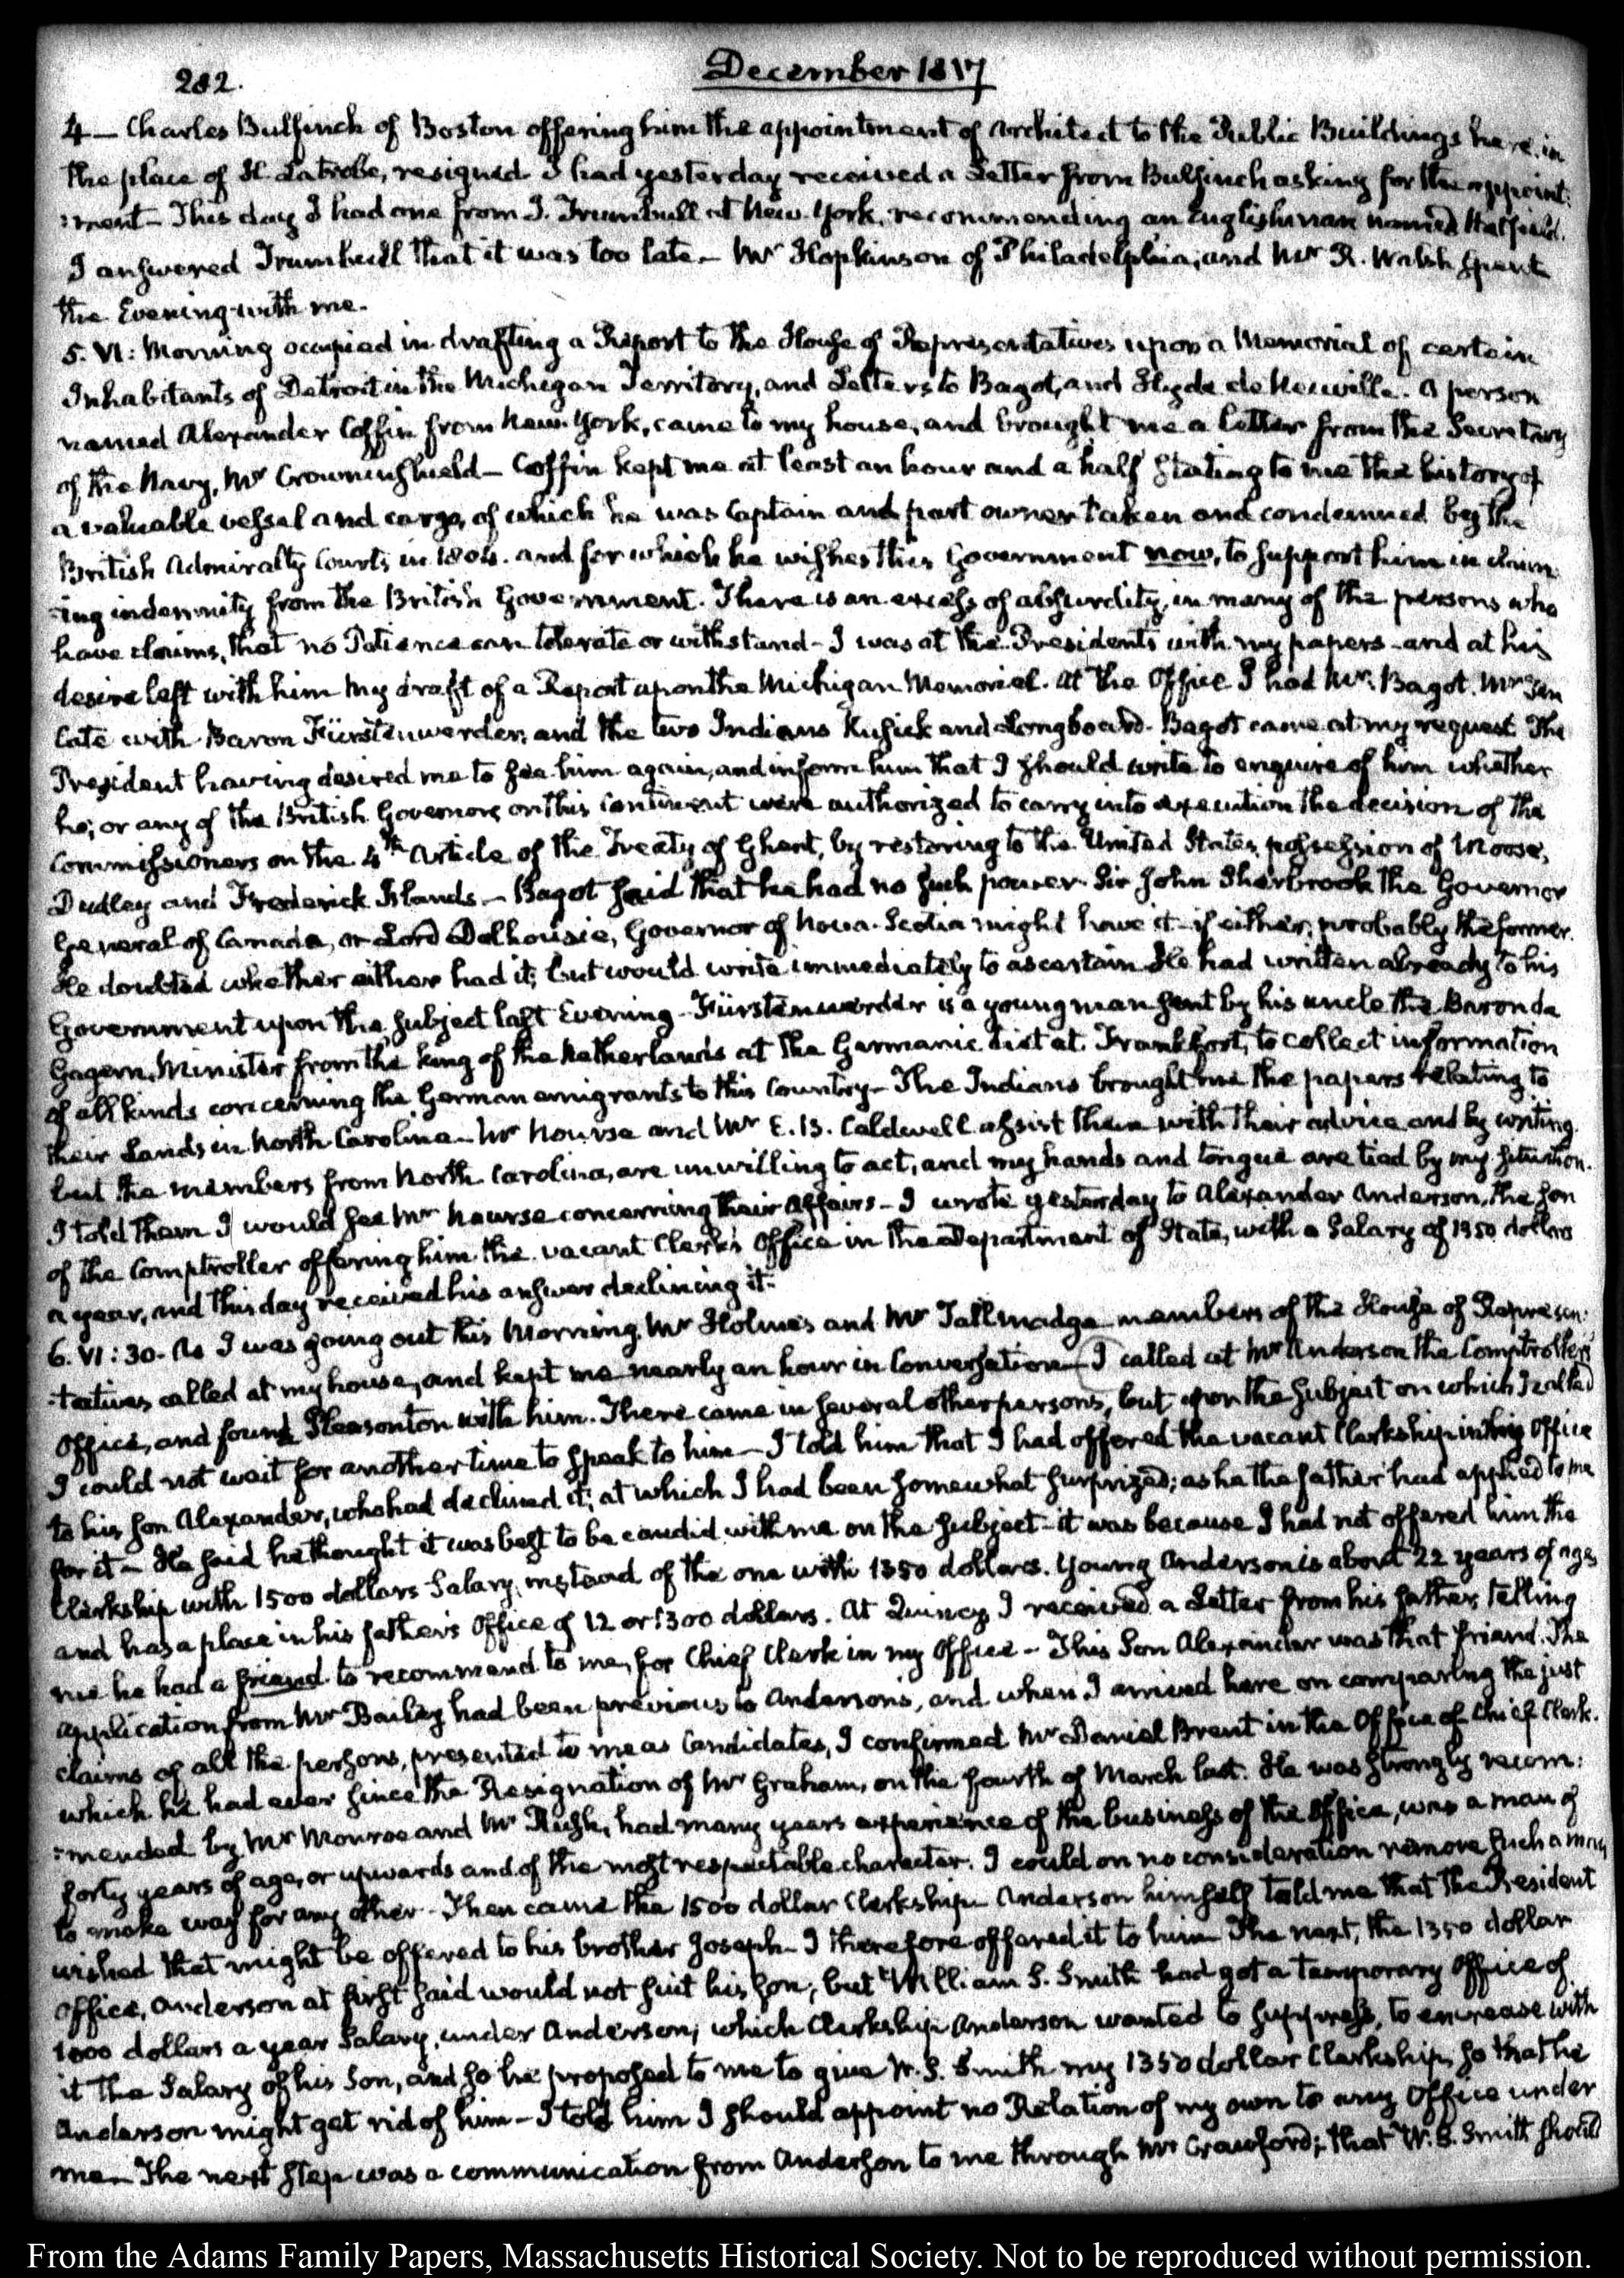 282.
December 1817
4 — Charles Bulfinch of Boston offering him the appointment of Architect to the Public Buildings here, in
the place of H. Latrobe, resigned. I had yesterday received a Letter from Bulfinch asking for the appoint:
:ment — This day I had one from J. Trumbull at New-York, recommending an Englishman named Hatfield.
I answered Trumbull that it was too late. — Mr Hopkinson of Philadelphia, and Mr R. Walsh spent
the Evening with me.
5. VI: Morning occupied in drafting a Report to the House of Representatives upon a Memorial of certain
Inhabitants of Detroit in the Michigan Territory, and Letters to Bagot, and Hyde de Neuville. A person
named Alexander Coffin from New-York, came to my house, and brought me a letter from the Secretary
of the Navy, Mr Crowninshield — Coffin kept me at least an hour and a half stating to me the history of
a valuable vessel and cargo, of which he was Captain and part owner taken and condemned by the
British Admiralty Courts in 1804. and for which he wishes this Government now, to support him in claim:
:ing indemnity from the British Government. There is an excess of absurdity, in many of the persons who
have claims, that no Patience can tolerate or withstand — I was at the President's with my papers — and at his
desire left with him my draft of a Report upon the Michigan Memorial. At the Office I had Mr Bagot. Mr Ten
Cate with Baron Fürstenwerder, and the two Indians Kusick and Longboard. Bagot came at my request. The
President having desired me to see him again, and inform him that I should write to enquire of him whether
he, or any of the British Governors on this Continent were authorized to carry into execution the decision of the
Commissioners on the 4th Article of the Treaty of Ghent, by restoring to the United States, possession of Moose,
Dudley and Frederick Islands. — Bagot said that he had no such power. Sir John Sherbrook the Governor
General of Canada, or Lord Dalhousie, Governor of Nova-Scotia might have it — if either, probably the former.
He doubted whether either had it; but would write immediately to ascertain. He had written already to his
Government upon the subject last Evening — Fürstenwerder is a young man sent by his uncle the Baron de
Gagern, Minister from the King of the Netherlands at the Germanic diet at Frankfort, to collect information
of all kinds concerning the German emigrants to this Country — The Indians brought me the papers relating to
their Lands in North Carolina — Mr Nourse and Mr E. B. Caldwell assist them with their advice and by writing.
but the members from North Carolina, are unwilling to act, and my hands and tongue are tied by my situation.
I told them I would see Mr Nourse concerning their Affairs — I wrote yesterday to Alexander Anderson, the Son
of the Comptroller offering him the vacant Clerk's Office in the Department of State, with a Salary of 1350 dollars
a year, and this day received his answer declining it.
6. VI: 30. As I was going out this Morning, Mr Holmes and Mr Tallmadge members of the House of Represen:
:tatives called at my house, and kept me nearly an hour in Conversation — I called at Mr Anderson the Comptroller's
Office, and found Pleasonton with him. There came in several other persons, but upon the subject on which I called
I could not wait for another time to speak to him — I told him that I had offered the vacant Clerkship in this Office
to his Son Alexander, who had declined it; at which I had been somewhat surprized; as he the father had applied to me
for it — He said he thought it was best to be candid with me on the subject — it was because I had not offered him the
Clerkship with 1500 dollars Salary, instead of the one with 1350 dollars. Young Anderson is about 22 years of age,
and has a place in his father's Office of 12 or 1300 dollars. At Quincy I received a Letter from his father, telling
me he had a friend to recommend to me, for Chief Clerk in my Office — This Son Alexander was that friend. The
application from Mr Bailey had been previous to Anderson's, and when I arrived here on comparing the just
claims of all the persons, presented to me as Candidates, I confirmed Mr Daniel Brent in the Office of Chief Clerk.
which he had ever since the Resignation of Mr Graham, on the fourth of March last. He was strongly recom:
:mended by Mr Monroe and Mr Rush, had many years experience of the business of the Office, was a man of
forty years of age, or upwards and of the most respectable character. I could on no consideration remove such a man
to make way for any other — Then came the 1500 dollar Clerkship. Anderson himself told me that the President
wished that might be offered to his brother Joseph — I therefore offered it to him. The next, the 1350 dollar
Office, Anderson at first said would not suit his son; but William S. Smith had got a temporary Office of
1000 dollars a year Salary, under Anderson; which Clerkship Anderson wanted to suppress, to encrease with
it the Salary of his Son, and so he proposed to me to give W. S. Smith my 1350 dollar Clerkship, so that he
Anderson might get rid of him — I told him I should appoint no Relation of my own to any Office under
me — The next step was a communication from Anderson to me through Mr Crawford; that W. S. Smith should
From the Adams Family Papers, Massachusetts Historical Society. Not to be reproduced without permission.